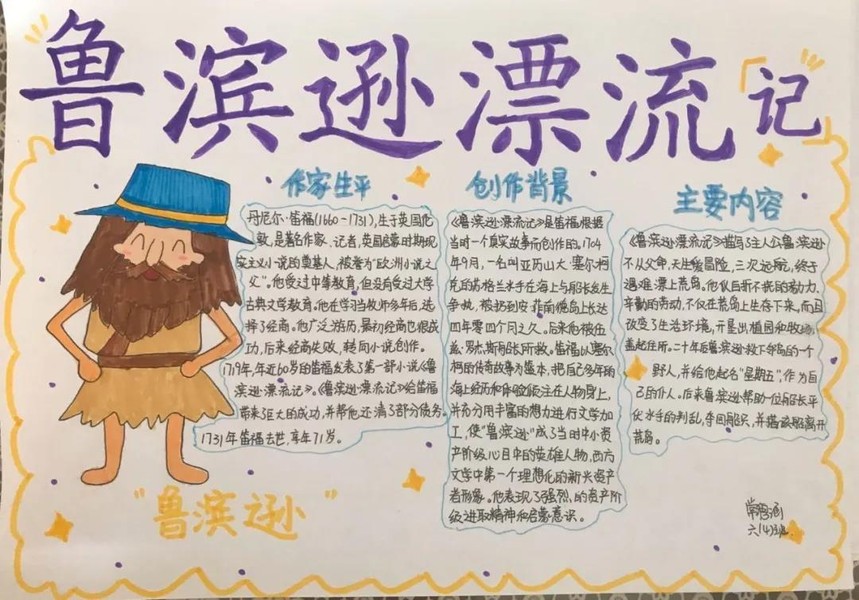 鲁滨逊漂流「记」
作家生平
丹尼尔·笛福(1660-1731),生于英国伦
敦,是著名作家、记者,英国启蒙时期现
实主义小说的奠基人,被誉为“欧洲小说之
父”。他受过中等教育,但没有受过大学
古典文学教育。他在学当牧师多年后,选
择了经商。他广泛游历,最初经商也很成
功,后来经商失败,转向小说创作。
1719年,年近60岁的笛福发表了第一部小说《鲁
滨逊漂流记》。《鲁滨逊漂流记》给笛福
带来巨大的成功,并帮他还清了部分债务。
1731年笛福去世,享年71岁。
创作背景
《鲁滨逊漂流记》是笛福根据
当时一个真实故事而创作的。1704
年9月,一名叫亚历山大·塞尔柯
克的苏格兰水手在海上与船长发生
争吵,被扔到安菲南德岛上长达
四年零四个月之久。后来他被伍
兹·罗杰斯船长所救。笛福以塞尔
柯的传奇故事为蓝本,把自己多年的
海上经历和体验倾注在人物身上,
并充分用丰富的想力进行文学加
工,使“鲁滨逊”成了当时中小资
产阶级心目中的英雄人物,西方
文学中第一个理想化的新兴资产
者形象。他表现了强烈,的资产阶
级进取精神和启蒙意识。
主要内容
《鲁滨逊漂流记》描写主人公鲁滨逊
不从父命,天生爱冒险,三次远航,终于
遇难漂上荒岛。他以百折不挠的毅力、
辛勤的劳动,不仅在荒岛上生存下来。而且
改变了生活环境,开垦出植园和牧场,
盖起住所。二十年后鲁滨逊救下命岛的一个
野人,并给他起名“星期五”,作为自
己的仆人。后来鲁滨逊帮助一位船长平
化水手的判乱,夺回船只,并搭该船离开
荒岛。
“鲁滨逊”
六(4)班